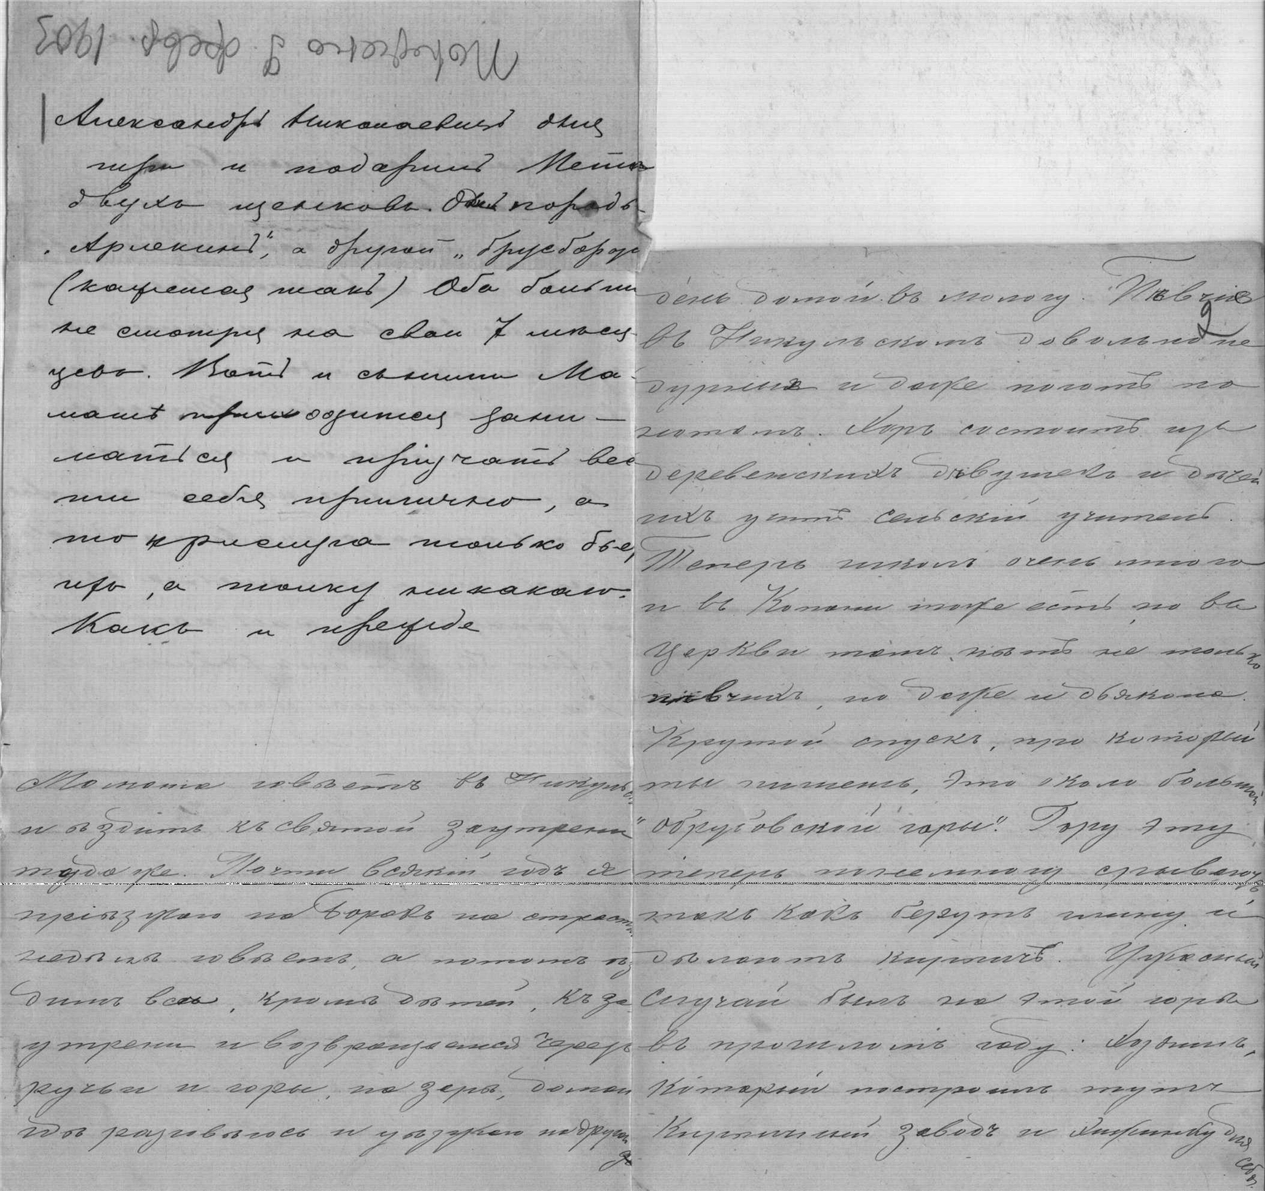 Получено 9 февр. 1903
Александръ Николаевичъ дня
три и подарилъ Метѣ
двухъ щенковъ. Одинъ породы
„Арлекинъ“, а другой „брусбартъ
(кажется такъ) Оба большіе
не смотря на свои 7 мѣся
цевъ. Вотъ и съ ними Ма-
машѣ приходится зани-
маться и пріучать вес
ти себя прилично, а
то прислуга только бье
тъ, а толку никакого.
Какъ и прежде
Мамаша говѣетъ въ Никульс.
и ѣздитъ къ святой заутрени
туда же. Почти всякій годъ я
пріѣзжаю на Борокъ на страстн.
недѣлѣ говѣть, а потомъ ѣз
димъ всѣ, кромѣ дѣтей, къ за
утрени и возвращаемся черезъ
ручьи и горы, на зарѣ, домой
гдѣ разговѣюсь и уѣзжаю на другой
день домой въ Мологу. Пѣвчіе
2
въ Никульскомъ довольно не
дурные и даже поютъ по
нотамъ. Хоръ состоитъ изъ
деревенскихъ дѣвушекъ и дѣтей
ихъ учитъ сельскій учитель.
Теперь школъ очень много
и въ Копани тоже есть, но въ
церкви тамъ нѣтъ не только
пѣвчихъ, но даже и дьякона.
Крутой спускъ, про который
ты пишешь, это около большой
"обрубовской горы". Гору эту
теперь понемногу срываютъ
такъ какъ берутъ глину и
дѣлаютъ кирпичъ. Ужасный
случай былъ на этой горѣ
въ прошломъ году: Хозяинъ,
который построилъ тутъ
Кирпичный заводъ и хижинку для
себя,